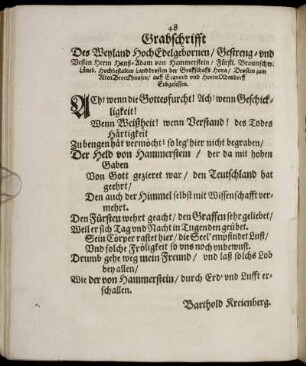 48
Grabschrifft
Des Weyland HochEdelgebornen / Gestreng- vnd
Vesten Herrn Hanß-Adam von Hammerstein / Fürstl. Braunschw.
Lüneb. Hochbestalten Landdrosten der Graffschafft Hoya / Drosten zum
AltenBruchhausen / auff Equord vnd HornOldendorff
Erbgesessen.
ACh / wenn die Gottesfurcht! Ach / wenn Geschick-
ligkeit!
Wenn Weißheit! wenn Verstand! des Todes
Härtigkeit
Zu bengen hät vermöcht! so leg' hier nicht begraben /
Der Held von Hammerstein / der da mit hohen
Gaben
Von Gott gezieret war / den Teutschland hat
geehrt /
Den auch der Himmel selbst mit Wissenschafft ver-
mehrt.
Den Fürsten wehrt geacht / den Graffen sehr geliebet /
Weil er sich Tag vnd Nacht in Tugenden geübet.
Sein Cörper rastet hier / die Seel' empfindet Lust /
Vnd solche Fröligkeit so vns noch vnbewust.
Drumb gehe weg mein Freund / vnd laß solchs Lob
bey allen /
Wie der von Hammerstein / durch Erd' vnd Lufft er-
schallen.
Barthold Kreienberg.